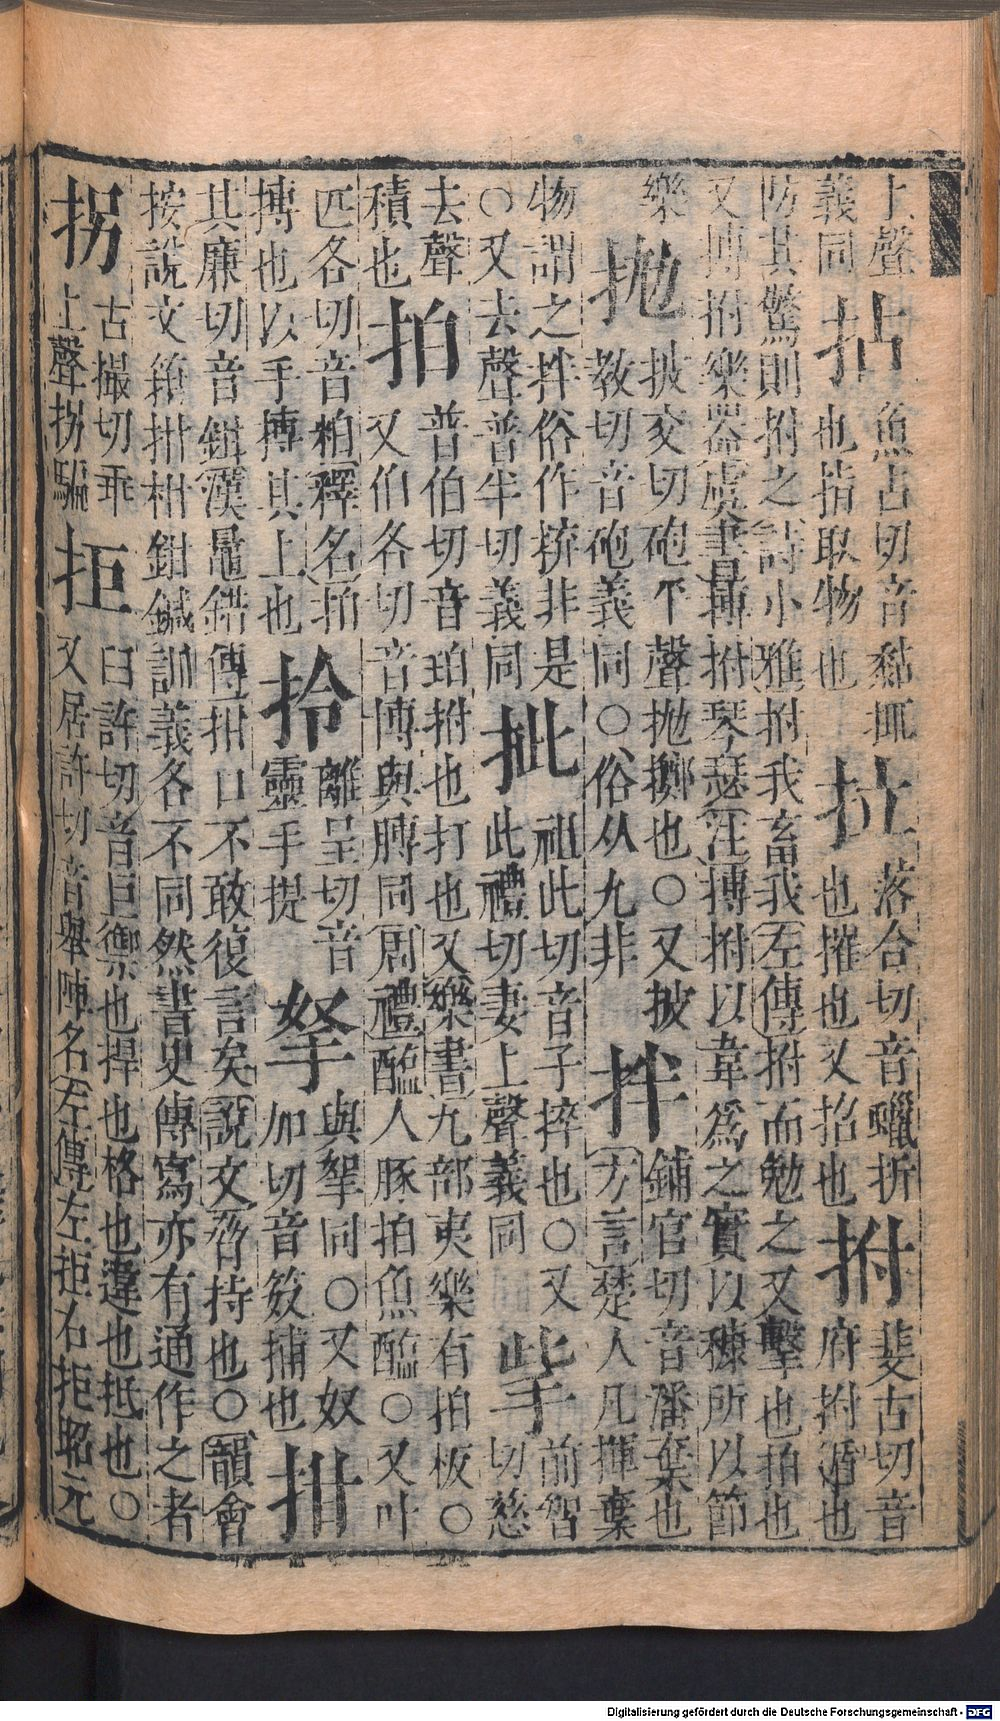 上聲
義同
拈
魚占切音黏抓
也指取物也
拉
落合切音蠟折
也摧也又招也
拊
斐古切音
府拊循也
防其驚則拊之詩小雅拊我畜我左傳拊而勉之又擊也拍也
又搏拊樂器虞書搏拊琴瑟注搏拊以韋爲之實以糠所以節
樂
拋
披交切砲平聲拋擲也○又披
教切音砲義同○俗从九非
拌
鋪官切音潘棄也
方言楚人凡揮棄
物謂之拌俗作拚非是
○又去聲普半切義同
㧗
祖此切音子捽也○又
此禮切妻上聲義同
前智
切慈
去聲
積也
拍
普伯切音珀拊也打也又樂書九部夷樂有拍板○
又伯各切音博與膊同周禮醢人豚拍魚醢○又叶
匹各切音粕釋名拍
搏也以手搏其上也
拎
離呈切音
靈手提
拏
與挐同○又奴
加切音笯捕也
拑
其廉切音鉗漢鼂錯傳拑口不敢復言矣說文脅持也○韻會
按說文箝拑柑鉗鍼訓義各不同然書史傳寫亦有通作之者
拐
古撮切乖
上聲拐騙
拒
臼許切音巨禦也捍也格也違也抵也○
又居許切音舉陣名左傳左拒右拒昭元
Digitalisierung gefördert durch die Deutsche Forschungsgemeinschaft - DFG